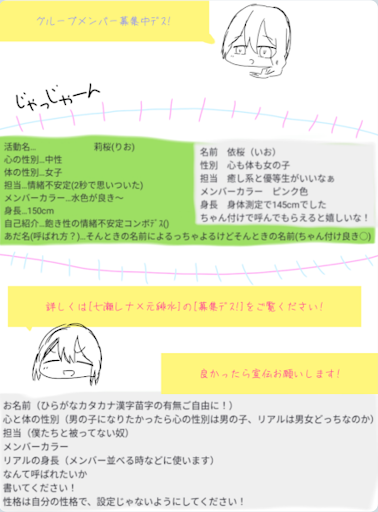 グループメンバー募集中デス!
じゃっじゃーん
活動名… 莉桜(りお)
心の性別…中性
体の性別…女子
担当…情緒不安定(2秒で思いついた)
メンバーカラー…水色が良き〜
身長…150cm
自己紹介…飽き性の情緒不安定コンボデス()
あだ名(呼ばれ方？)…そんときの名前によるっちゃよるけどそんときの名前(ちゃん付け良き○)
名前 依桜（いお）
性別 心も体も女の子
担当 癒し系と優等生がいいなぁ
メンバーカラー ピンク色
身長 身体測定で145cmでした
ちゃん付けで呼んでもらえると嬉しいな！
詳しくは[七瀬しナ×元師水]の[募集デス!]をご覧ください!
良かったら宣伝お願いします!
お名前（ひらがなカタカナ漢字苗字の有無ご自由に！）
心と体の性別（男の子になりたかったら心の性別は男の子、リアルは男女どっちなのか）
担当（僕たちと被ってない奴）
メンバーカラー
リアルの身長（メンバー並べる時などに使います）
なんて呼ばれたいか
書いてください！
性格は自分の性格で、設定じゃないようにしてください！